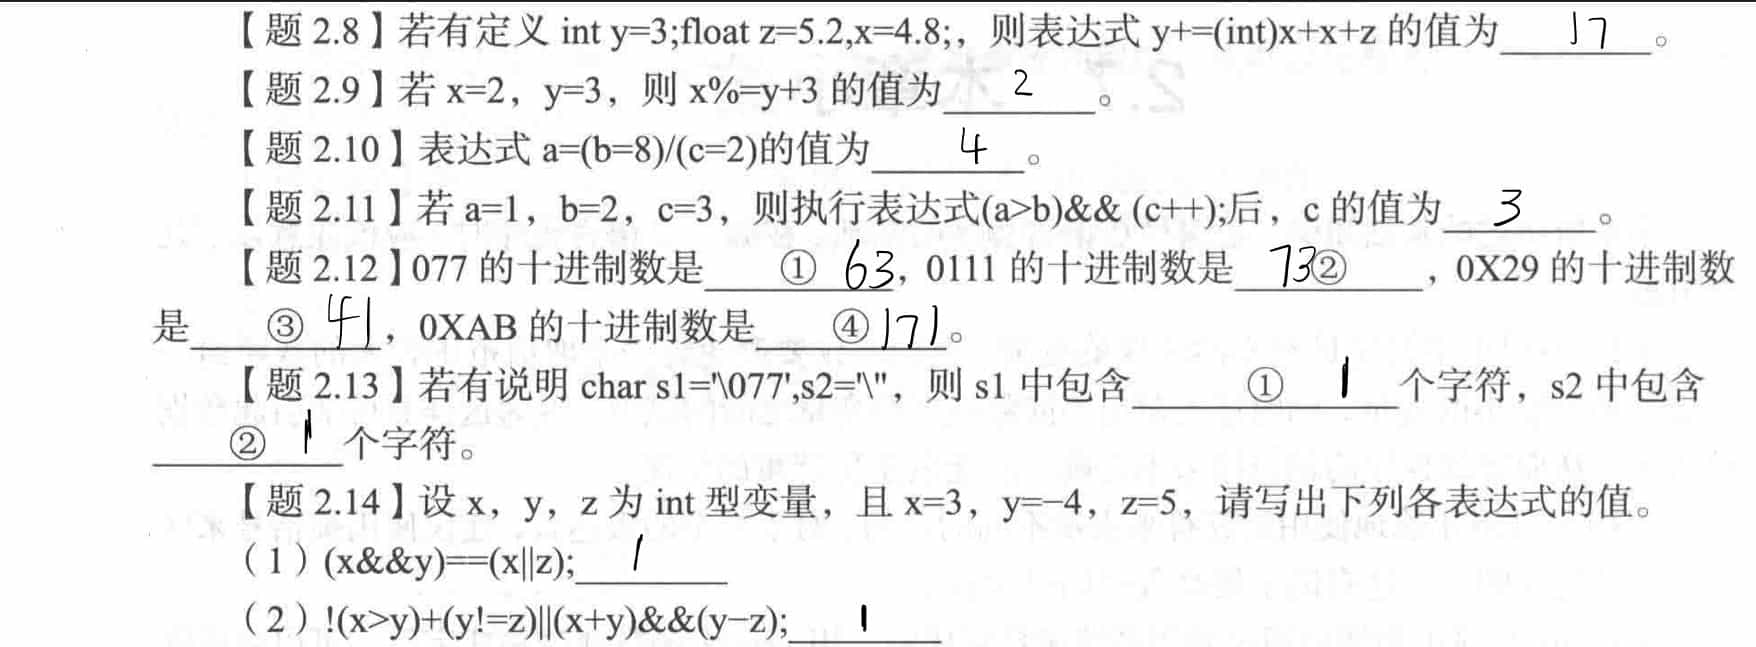 【题 2.8】若有定义 int y=3;float z=5.2,x=4.8;，则表达式 y+=(int)x+x+z 的值为 17 。
【题 2.9】若 x=2，y=3，则 x%=y+3 的值为 2 。
【题 2.10】表达式 a=(b=8)/(c=2)的值为 4 。
【题 2.11】若 a=1，b=2，c=3，则执行表达式(a>b)&& (c++);后，c 的值为 3 。
【题 2.12】077 的十进制数是 ① 63 ，0111 的十进制数是 73② ，0X29 的十进制数
是 ③ 41 ，0XAB 的十进制数是 ④ 171 。
【题 2.13】若有说明 char s1='\077',s2='\''，则 s1 中包含 ① 1 个字符，s2 中包含
② 1 个字符。
【题 2.14】设 x，y，z 为 int 型变量，且 x=3，y=−4，z=5，请写出下列各表达式的值。
（1）(x&&y)==(x||z); 1
（2）!(x>y)+(y!=z)||(x+y)&&(y−z); 1